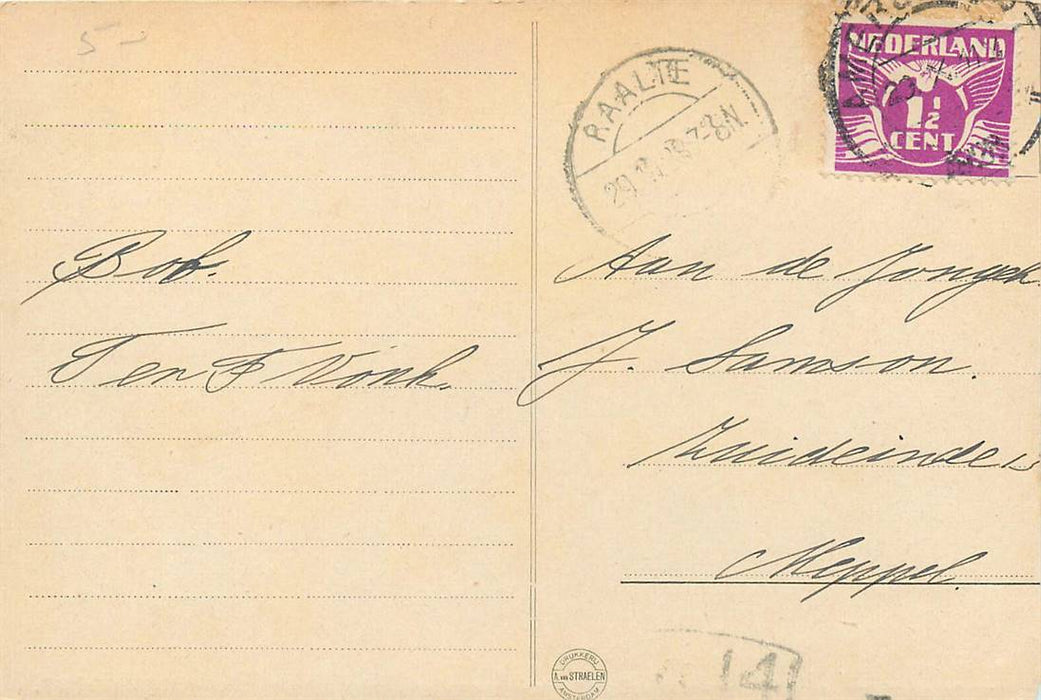 5-
Bob.
T en F Vonk.
RAALTE
NEDERLAND
1½
CENT
Aan de Jongeh.
J. Samson.
Zuideinde
Meppel.
DRUKKERIJ
A. van STRAELEN
AMSTERDAM
141